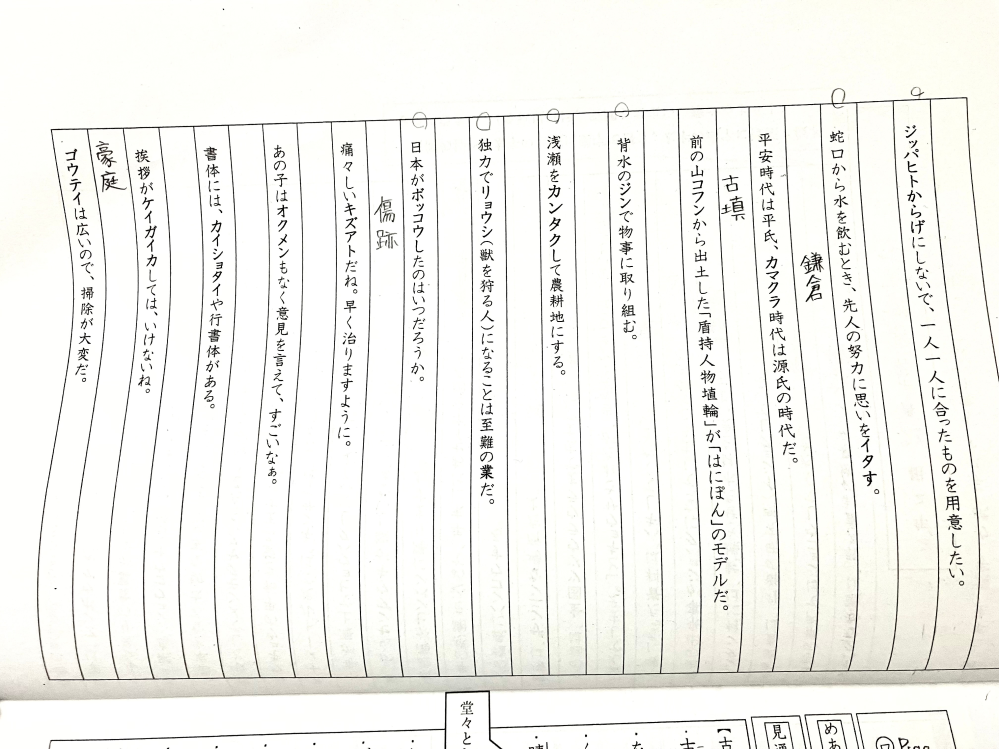 ジッパヒトからげにしないで、一人一人に合ったものを用意したい。
蛇口から水を飲むとき、先人の努力に思いをイタす。
鎌倉
平安時代は平氏、カマクラ時代は源氏の時代だ。
古墳
前の山コフンから出土した「盾持人物埴輪」が「はにぽん」のモデルだ。
背水のジンで物事に取り組む。
浅瀬をカンタクして農耕地にする。
独力でリョウシ(獣を狩る人)になることは至難の業だ。
日本がボッコウしたのはいつだろうか。
傷跡
痛々しいキズアトだね。早く治りますように。
あの子はオクメンもなく意見を言えて、すごいなぁ。
書体には、カイショタイや行書体がある。
挨拶がケイガイカしては、いけないね。
豪庭
ゴウテイは広いので、掃除が大変だ。
堂々と
見通
めあ